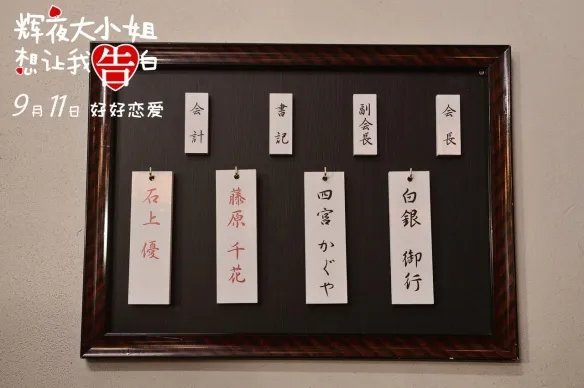 辉夜大小姐
想让我告白
9月11日 好好恋爱
会長
副会長
書記
会計
白銀 御行
四宮 かぐや
藤原 千花
石上 優